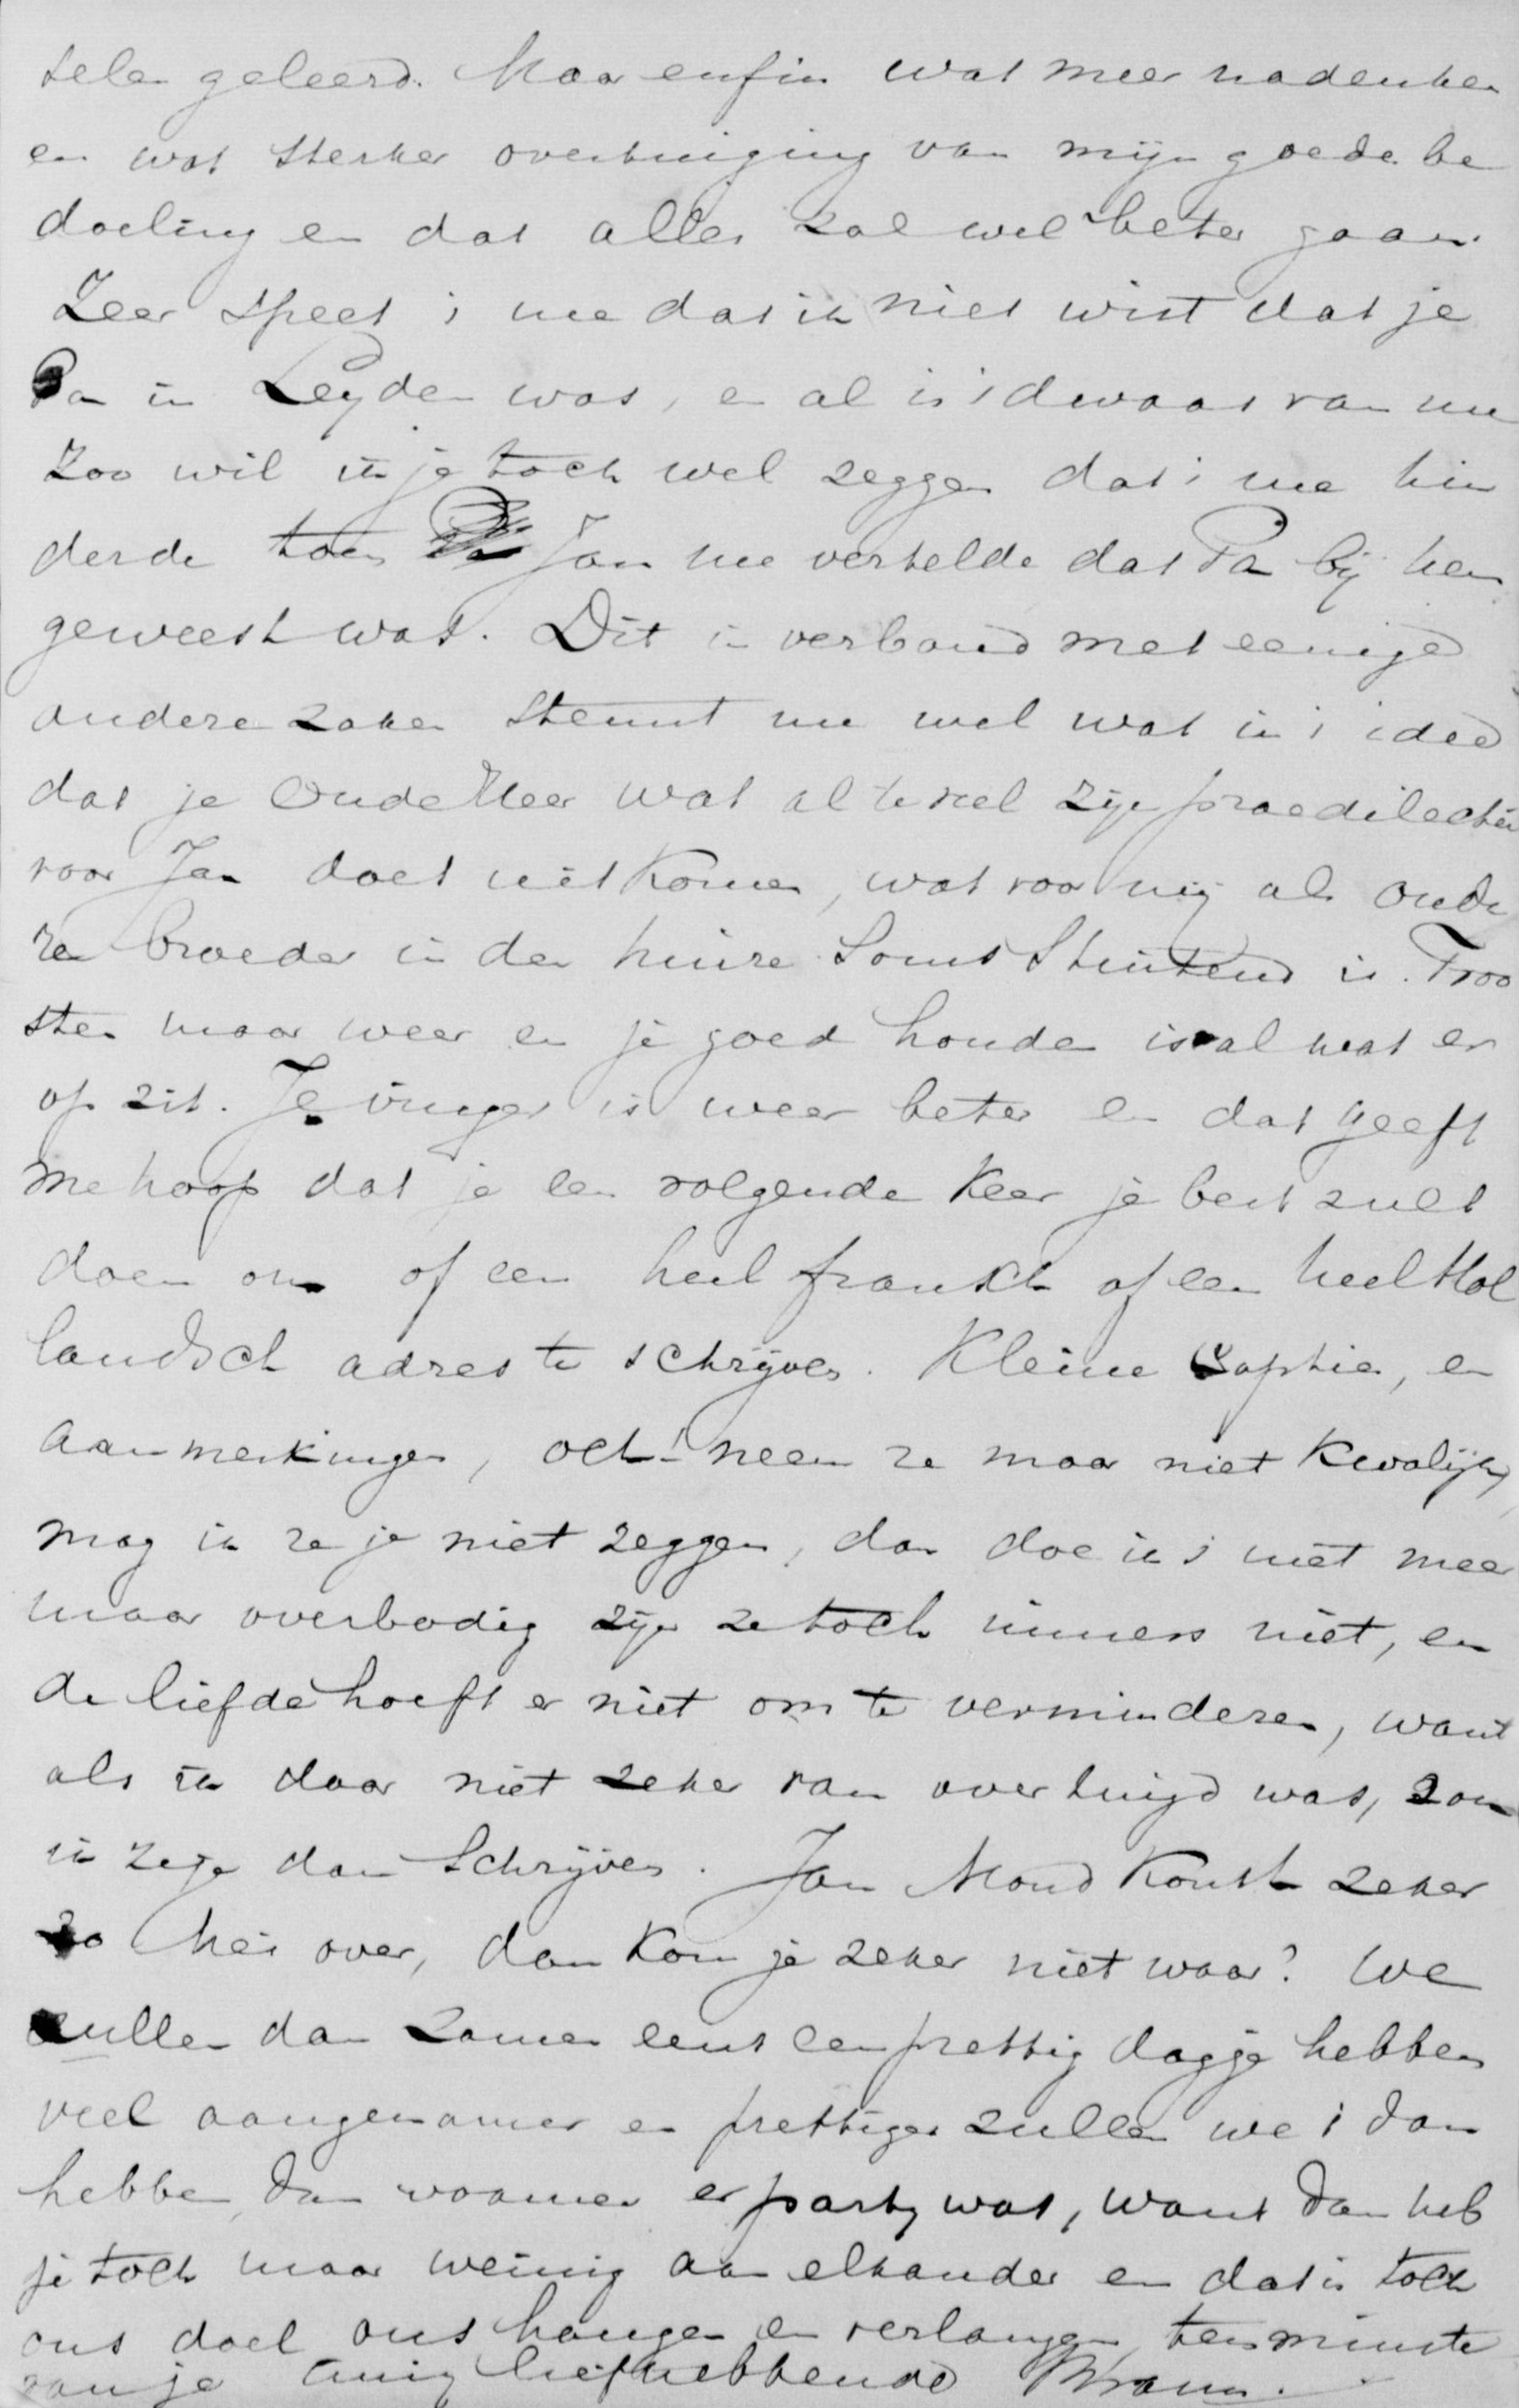 telen geleerd. Maar enfin wat meer nadenken
en wat sterker overtuiging van mijn goede be
doeling en dat alles zal wel beter gaan.
Zeer speet 't me dat ik niet wist dat je
Pa in Leyden was, en al is 't dwaas van me
zoo wil ik je toch wel zeggen dat 't me hin
derde toen Jan me vertelde dat Pa bij hen
geweest was. Dit in verband met eenige
andere zaken stemt me wel wat in 't idee
dat je Oude Heer wat al te veel zijn praedilectie
voor Jan doet uitkomen, wat voor mij als oude
ren broeder in den huize Soms Stuitend is. Troo
sten maar weer en je goed houden is al wat er
op zit. Je vinger is weer beter en dat geeft
me hoop dat je een volgende keer je best zult
doen om of een heel fransch of een heel Hol
landsch adres te schrijven. Kleine Sophie, en
aanmerkingen, och! neem ze maar niet kwalijk,
mag ik ze je niet zeggen, dan doe ik 't niet meer
maar overbodig zijn ze toch immers niet, en
de liefde hoeft er niet om te verminderen, want
als ik daar niet zeker van overtuigd was, zou
ik ze je dan Schrijven. Jan Mond komt zeker
zo hei over, dan kom je zeker niet waar? We
zullen dan zamen eens een prettig dagje hebben
veel aangenamer en prettiger zullen we 't dan
hebben, dan waarneer er party was, want dan heb
je toch maar weinig aan elkander en dat is toch
ons doel ons hangen en verlangen, tenminste
van je innig liefhebbende Bram.